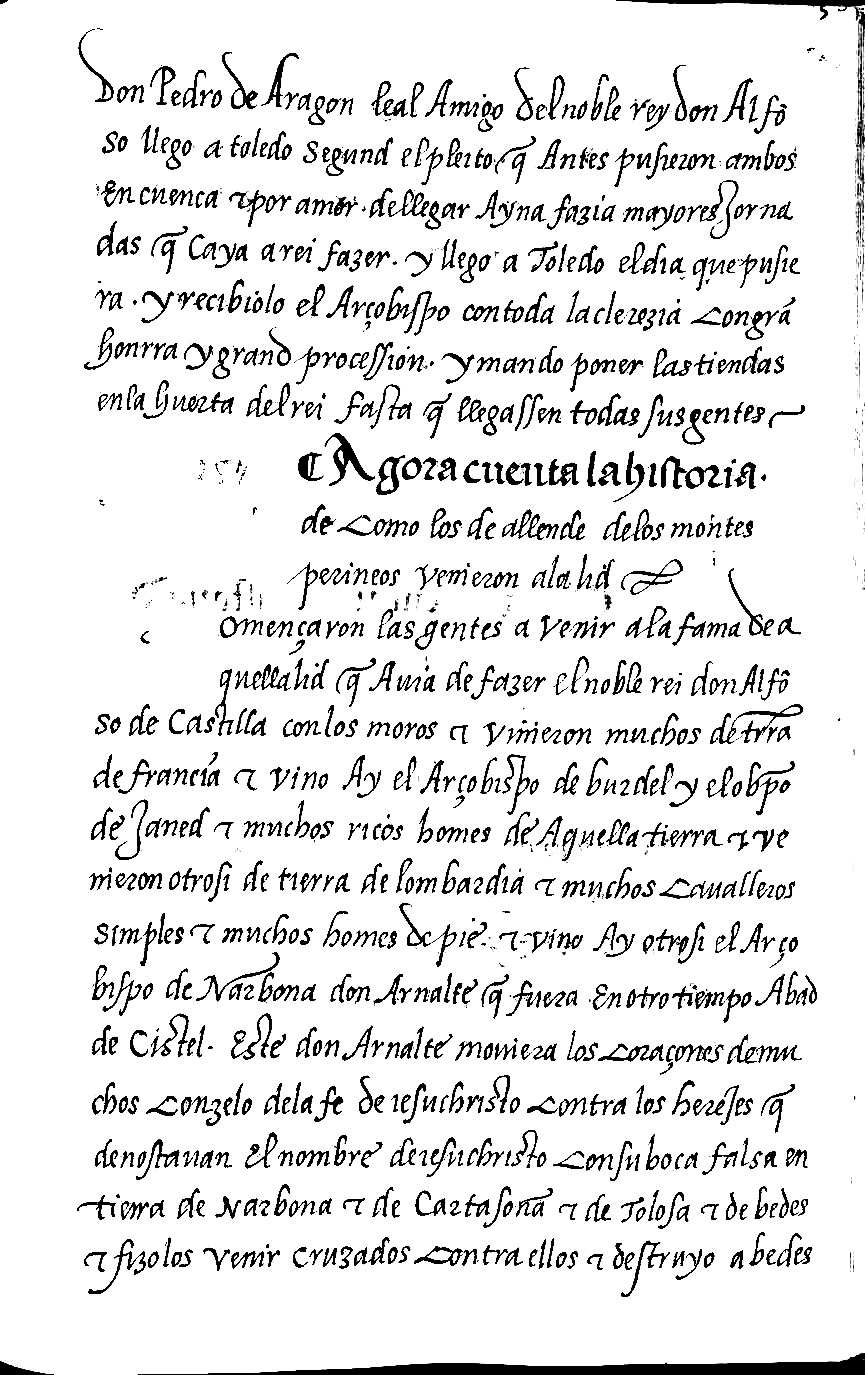 Don Pedro de Aragon leal Amigo del noble rey don Alfõ
so llego a toledo segund el pleito q̃ Antes pusieron ambos
En cuenca ꞇ por amor de llegar Ayna fazia mayores Jorna
das q̃ Caya a rei fazer. y llego a Toledo el dia que pusie
ra. y recibiolo el Arçobispo con toda la clerezia Con grã
honrra y grand procession. y mando poner las tiendas
en la huerta del rei fasta q̃ llegassen todas sus gentes
Agora cuenta la historia.
de Como los de allende de los montes
perineos venieron a la lid
c omençaron las gentes a venir a la fama de a
quella lid q̃ Auia de fazer el noble rei don Alfõ
so de Castilla con los moros ꞇ vinieron muchos de trr̃a
de francia ꞇ vino Ay el Arçobispo de burdel y el obp̃o
de Janed ꞇ muchos ricos homes de Aquella tierra ꞇ ve
nieron otrosi de tierra de lombardia ꞇ muchos Caualleros
simples ꞇ muchos homes de pie ꞇ vino Ay otrosi el Arço
bispo de Narbona don Arnalte q̃ fuera En otro tiempo Abad
de Cistel. Este don Arnalte mouiera los Coraçones de mu
chos Con zelo de la fe de iesuchristo Contra los herejes q̃
denostauan El nombre de iesuchristo Con su boca falsa en
tierra de Narbona ꞇ de Cartasonã ꞇ de Tolosa ꞇ de bedes
ꞇ fizolos venir cruzados Contra ellos ꞇ destruyo a bedes